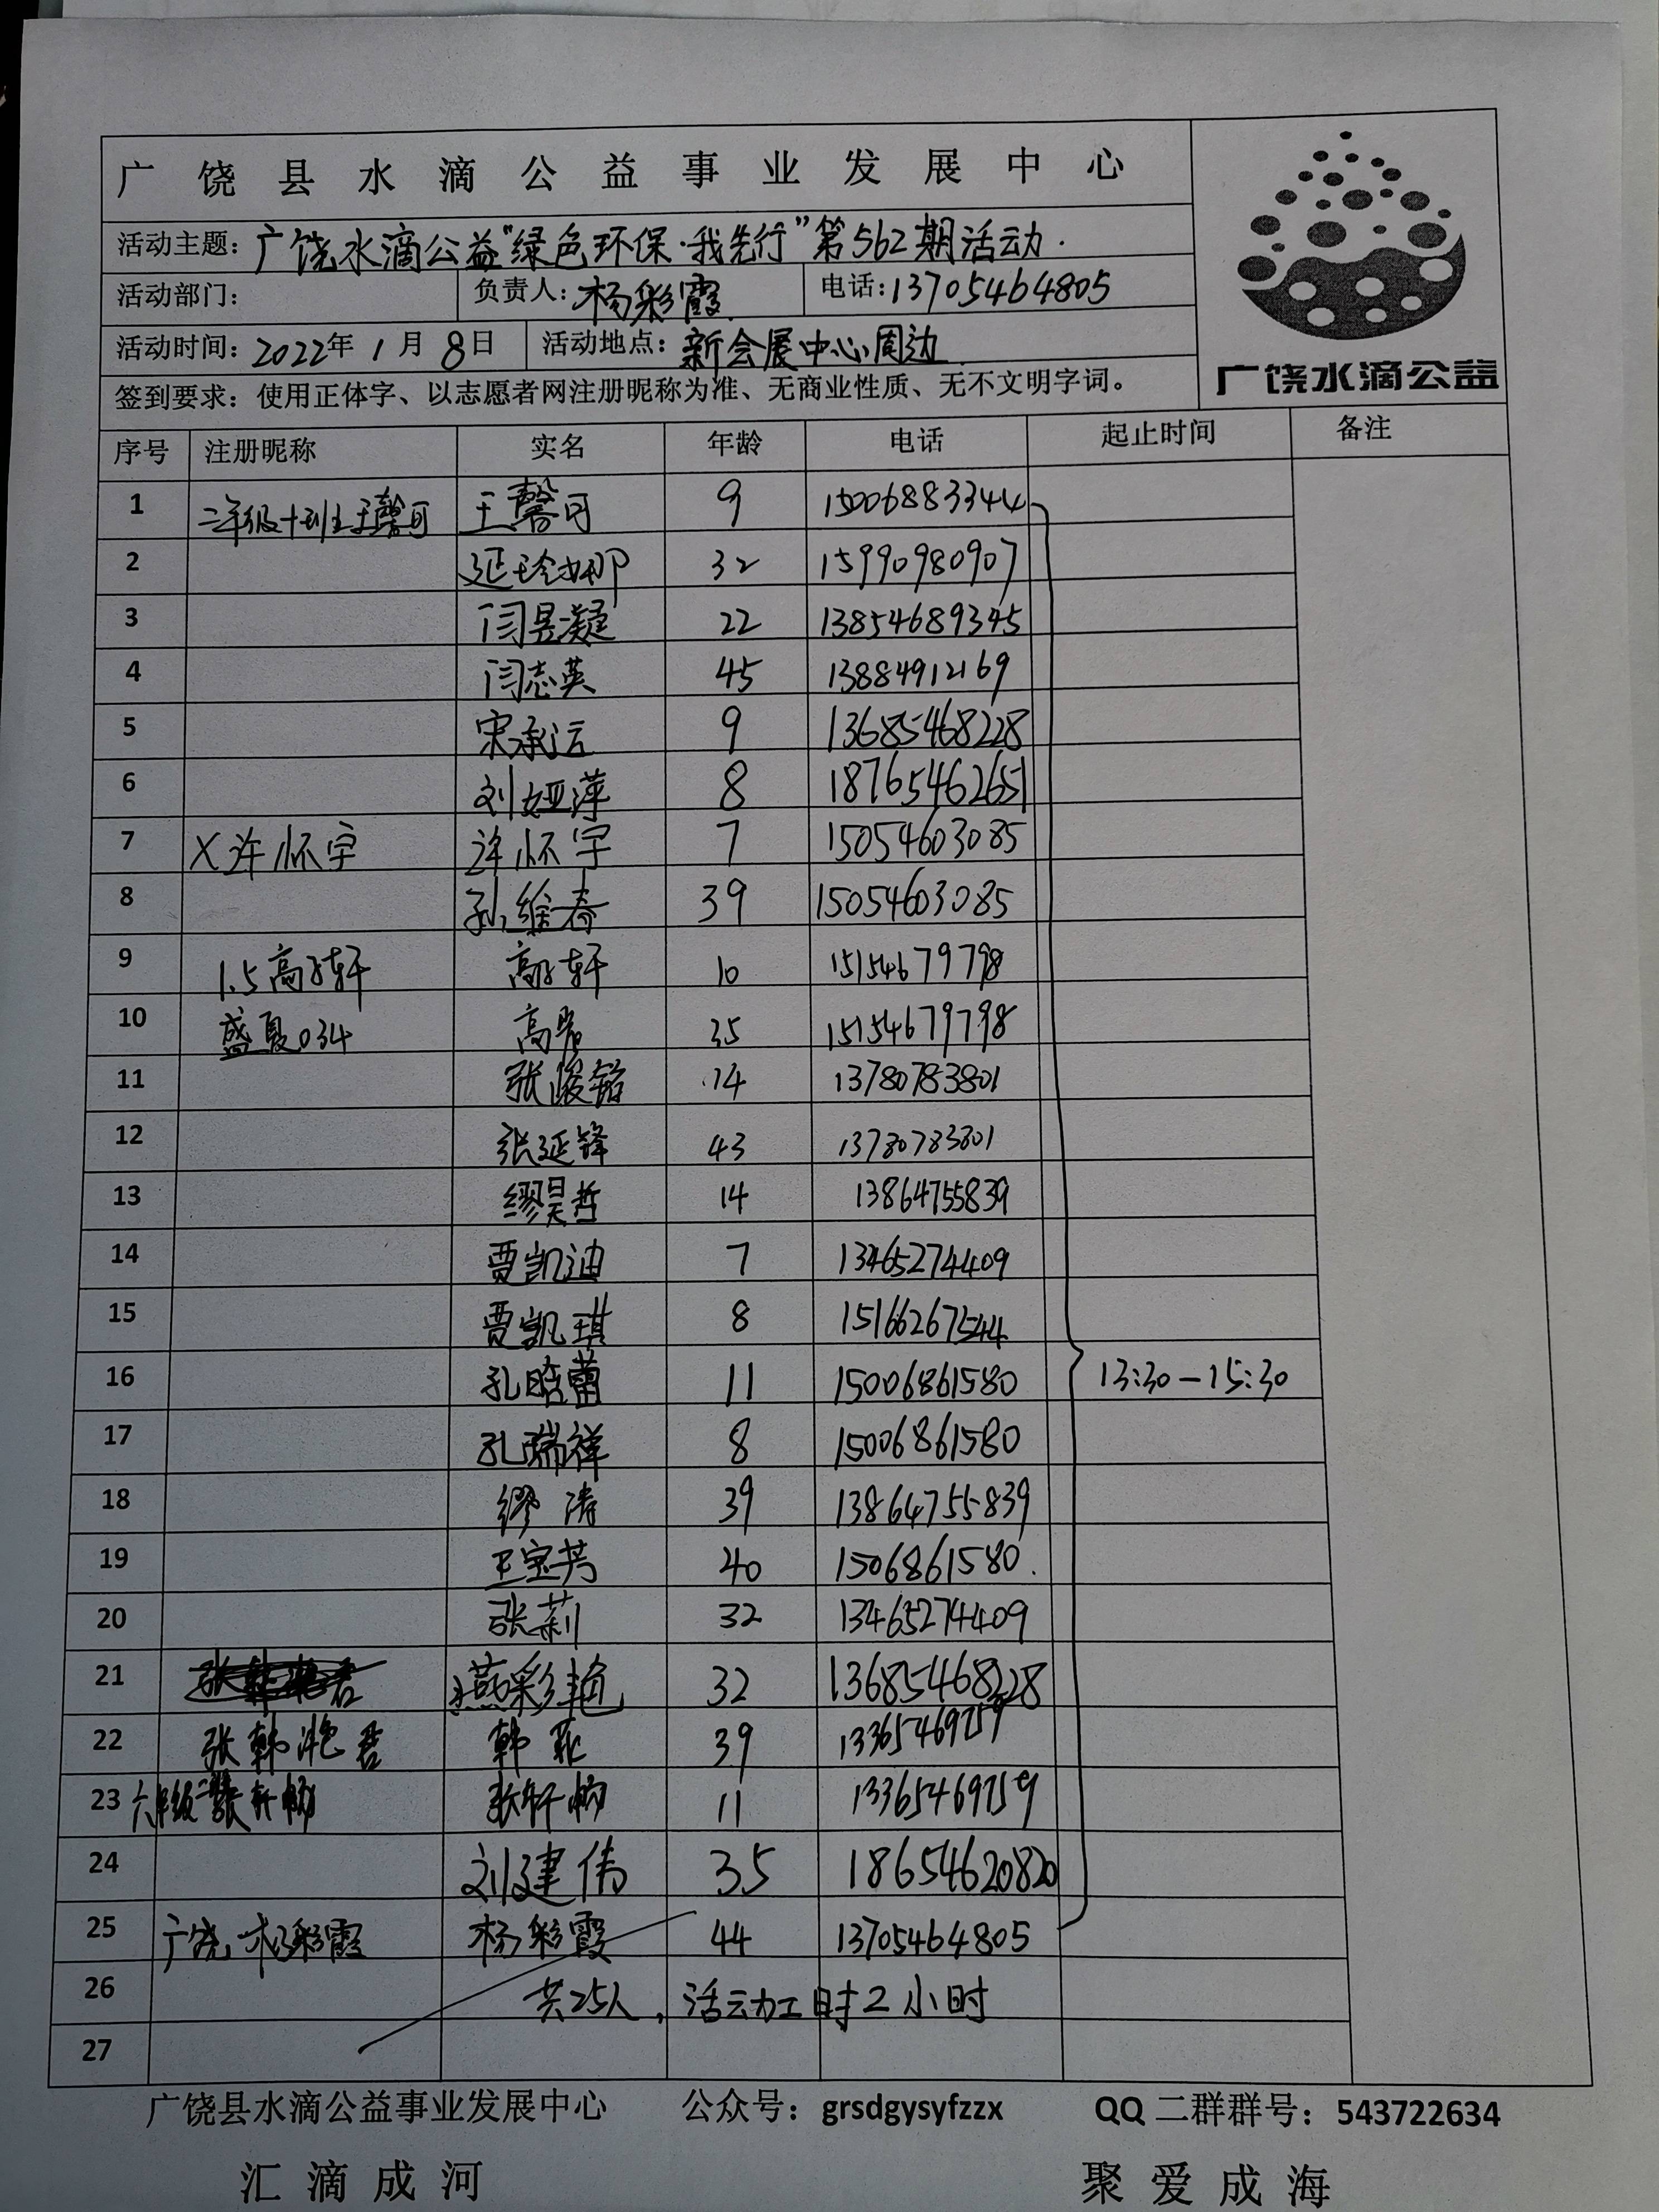 广饶县水滴公益事业发展中心
活动主题：广饶水滴公益“绿色环保·我先行”第562期活动.
活动部门： 负责人：杨彩霞 电话：13705464805
活动时间：2022年1月8日 活动地点：新会展中心周边
签到要求：使用正体字、以志愿者网注册昵称为准、无商业性质、无不文明字词。
广饶水滴公益
序号 注册昵称 实名 年龄 电话 起止时间 备注
1 二年级十班王馨可 王馨可 9 15006883344
2 延玲娜 32 15990980907
3 闫昱凝 22 13854689345
4 闫志英 45 13884912169
5 宋承远 9 13685468228
6 刘娅萍 8 18765462651
7 X许怀宇 许怀宇 7 15054603085
8 孙维春 39 15054603085
9 1.5高子轩 高子轩 10 15154679798
10 盛夏034 高 35 15154679798
11 张峻铭 14 13780783801
12 张延锋 43 13780783801
13 缪昊哲 14 13864755839
14 贾凯迪 7 13465274409
15 贾凯琪 8 15166267544
16 孔晗蕾 11 15006861580 13:30—15:30
17 孔瑞祥 8 15006861580
18 缪涛 39 13864755839
19 王宝芳 40 1506861580.
20 张莉 32 13465274409
21 燕彩艳 32 13685468228
22 张韩滟君 韩菲 39 13365469759
23 六年级二张轩畅 张轩畅 11 13365469759
24 刘建伟 35 18654620820
25 广饶杨彩霞 杨彩霞 44 13705464805
26 共25人，活动工时2小时
27
广饶县水滴公益事业发展中心 公众号：grsdgysyfzzx QQ二群群号：543722634
汇滴成河 聚爱成海